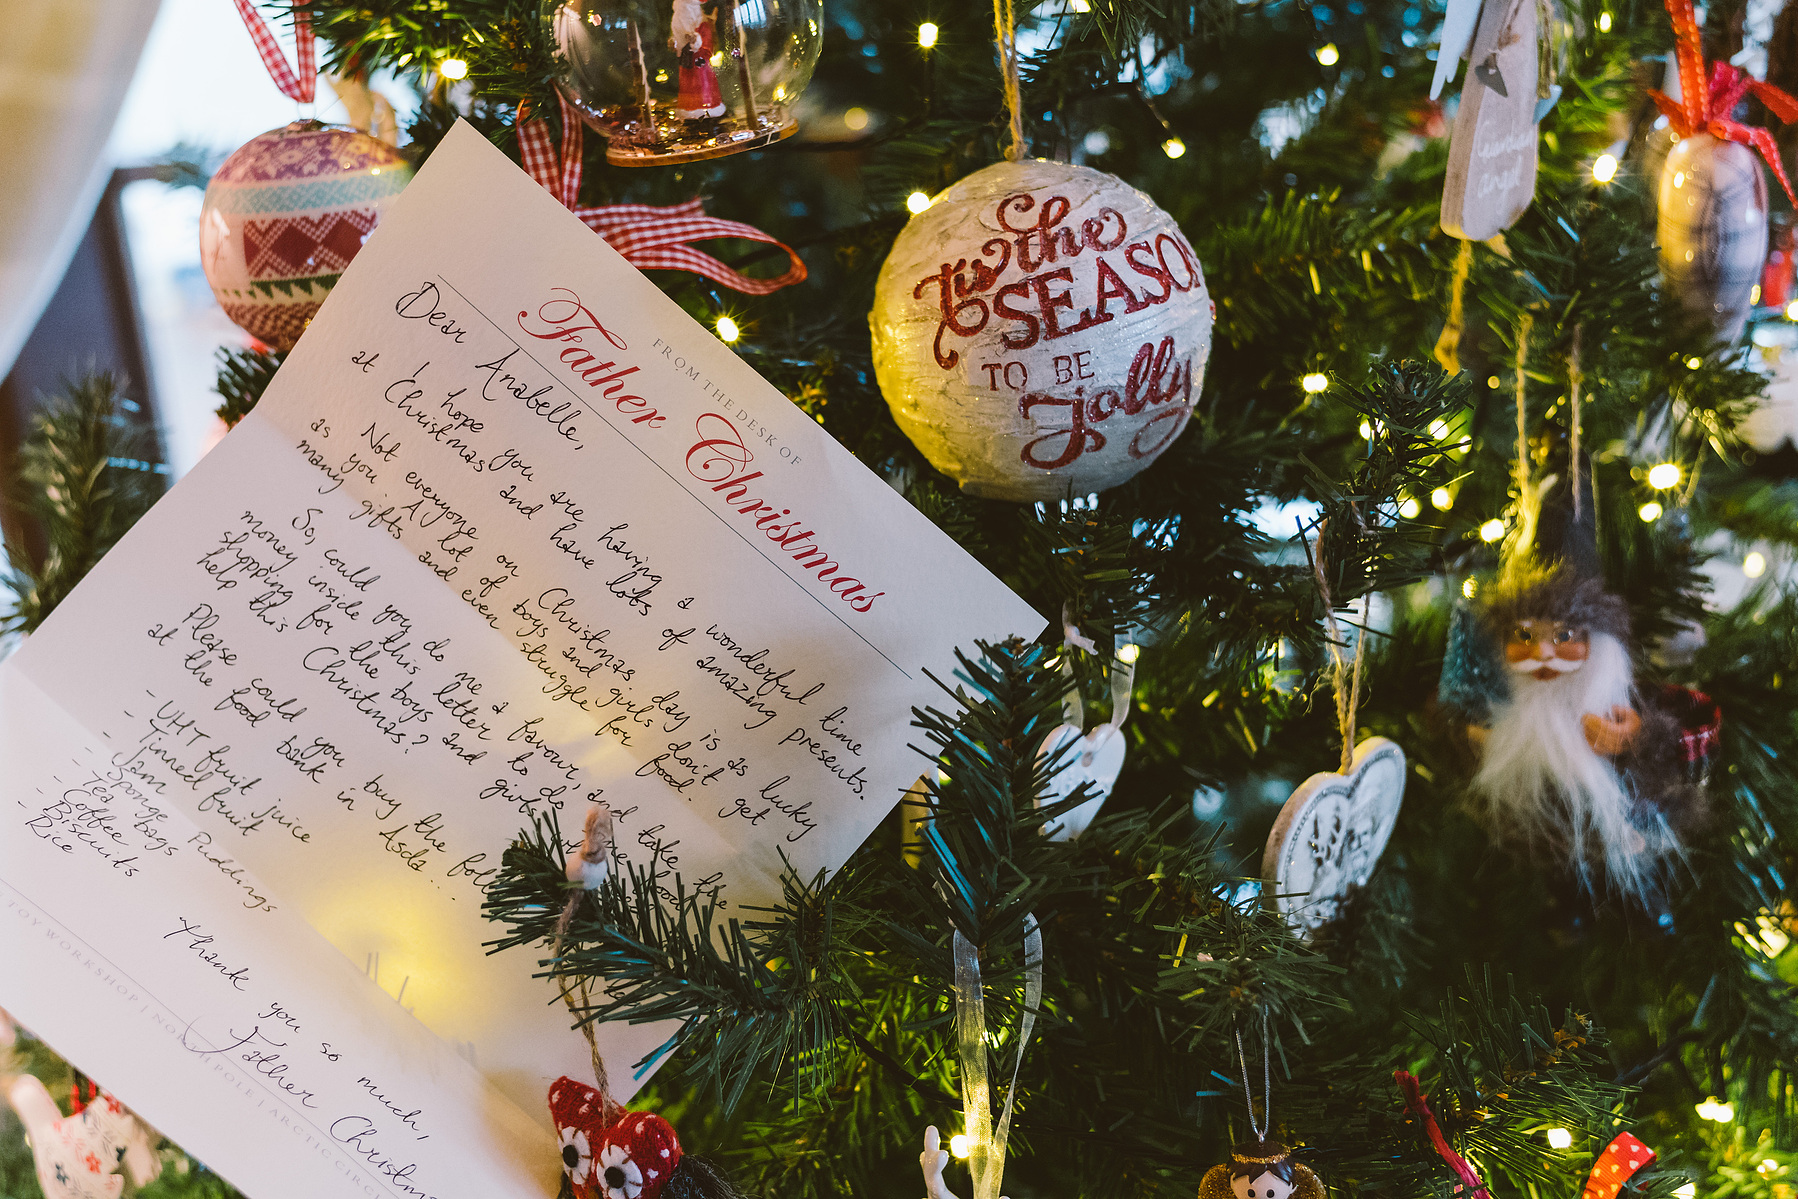 FROM THE DESK OF
Father Christmas
Dear Anabelle,
I hope you are having a wonderful time
at Christmas and have lots of amazing presents.
Not everyone on Christmas day is as lucky
as you. A lot of boys and girls don't get
many gifts and even struggle for food.
So, could you do me a favour, and take the
money inside this letter and to do
shopping for the boys and girls
help this Christmas?
Please could you buy the
at the food bank in Asda...
- UHT fruit juice
- Tinned fruit
- Jam
- Sponge Puddings
- Tea bags
- Coffee
- Biscuits
- Rice
Thank you so much,
Father
TOY WORKSHOP | NORTH POLE | ARCTIC
'tis the
SEASO
TO BE
Jolly
Guardian
angel